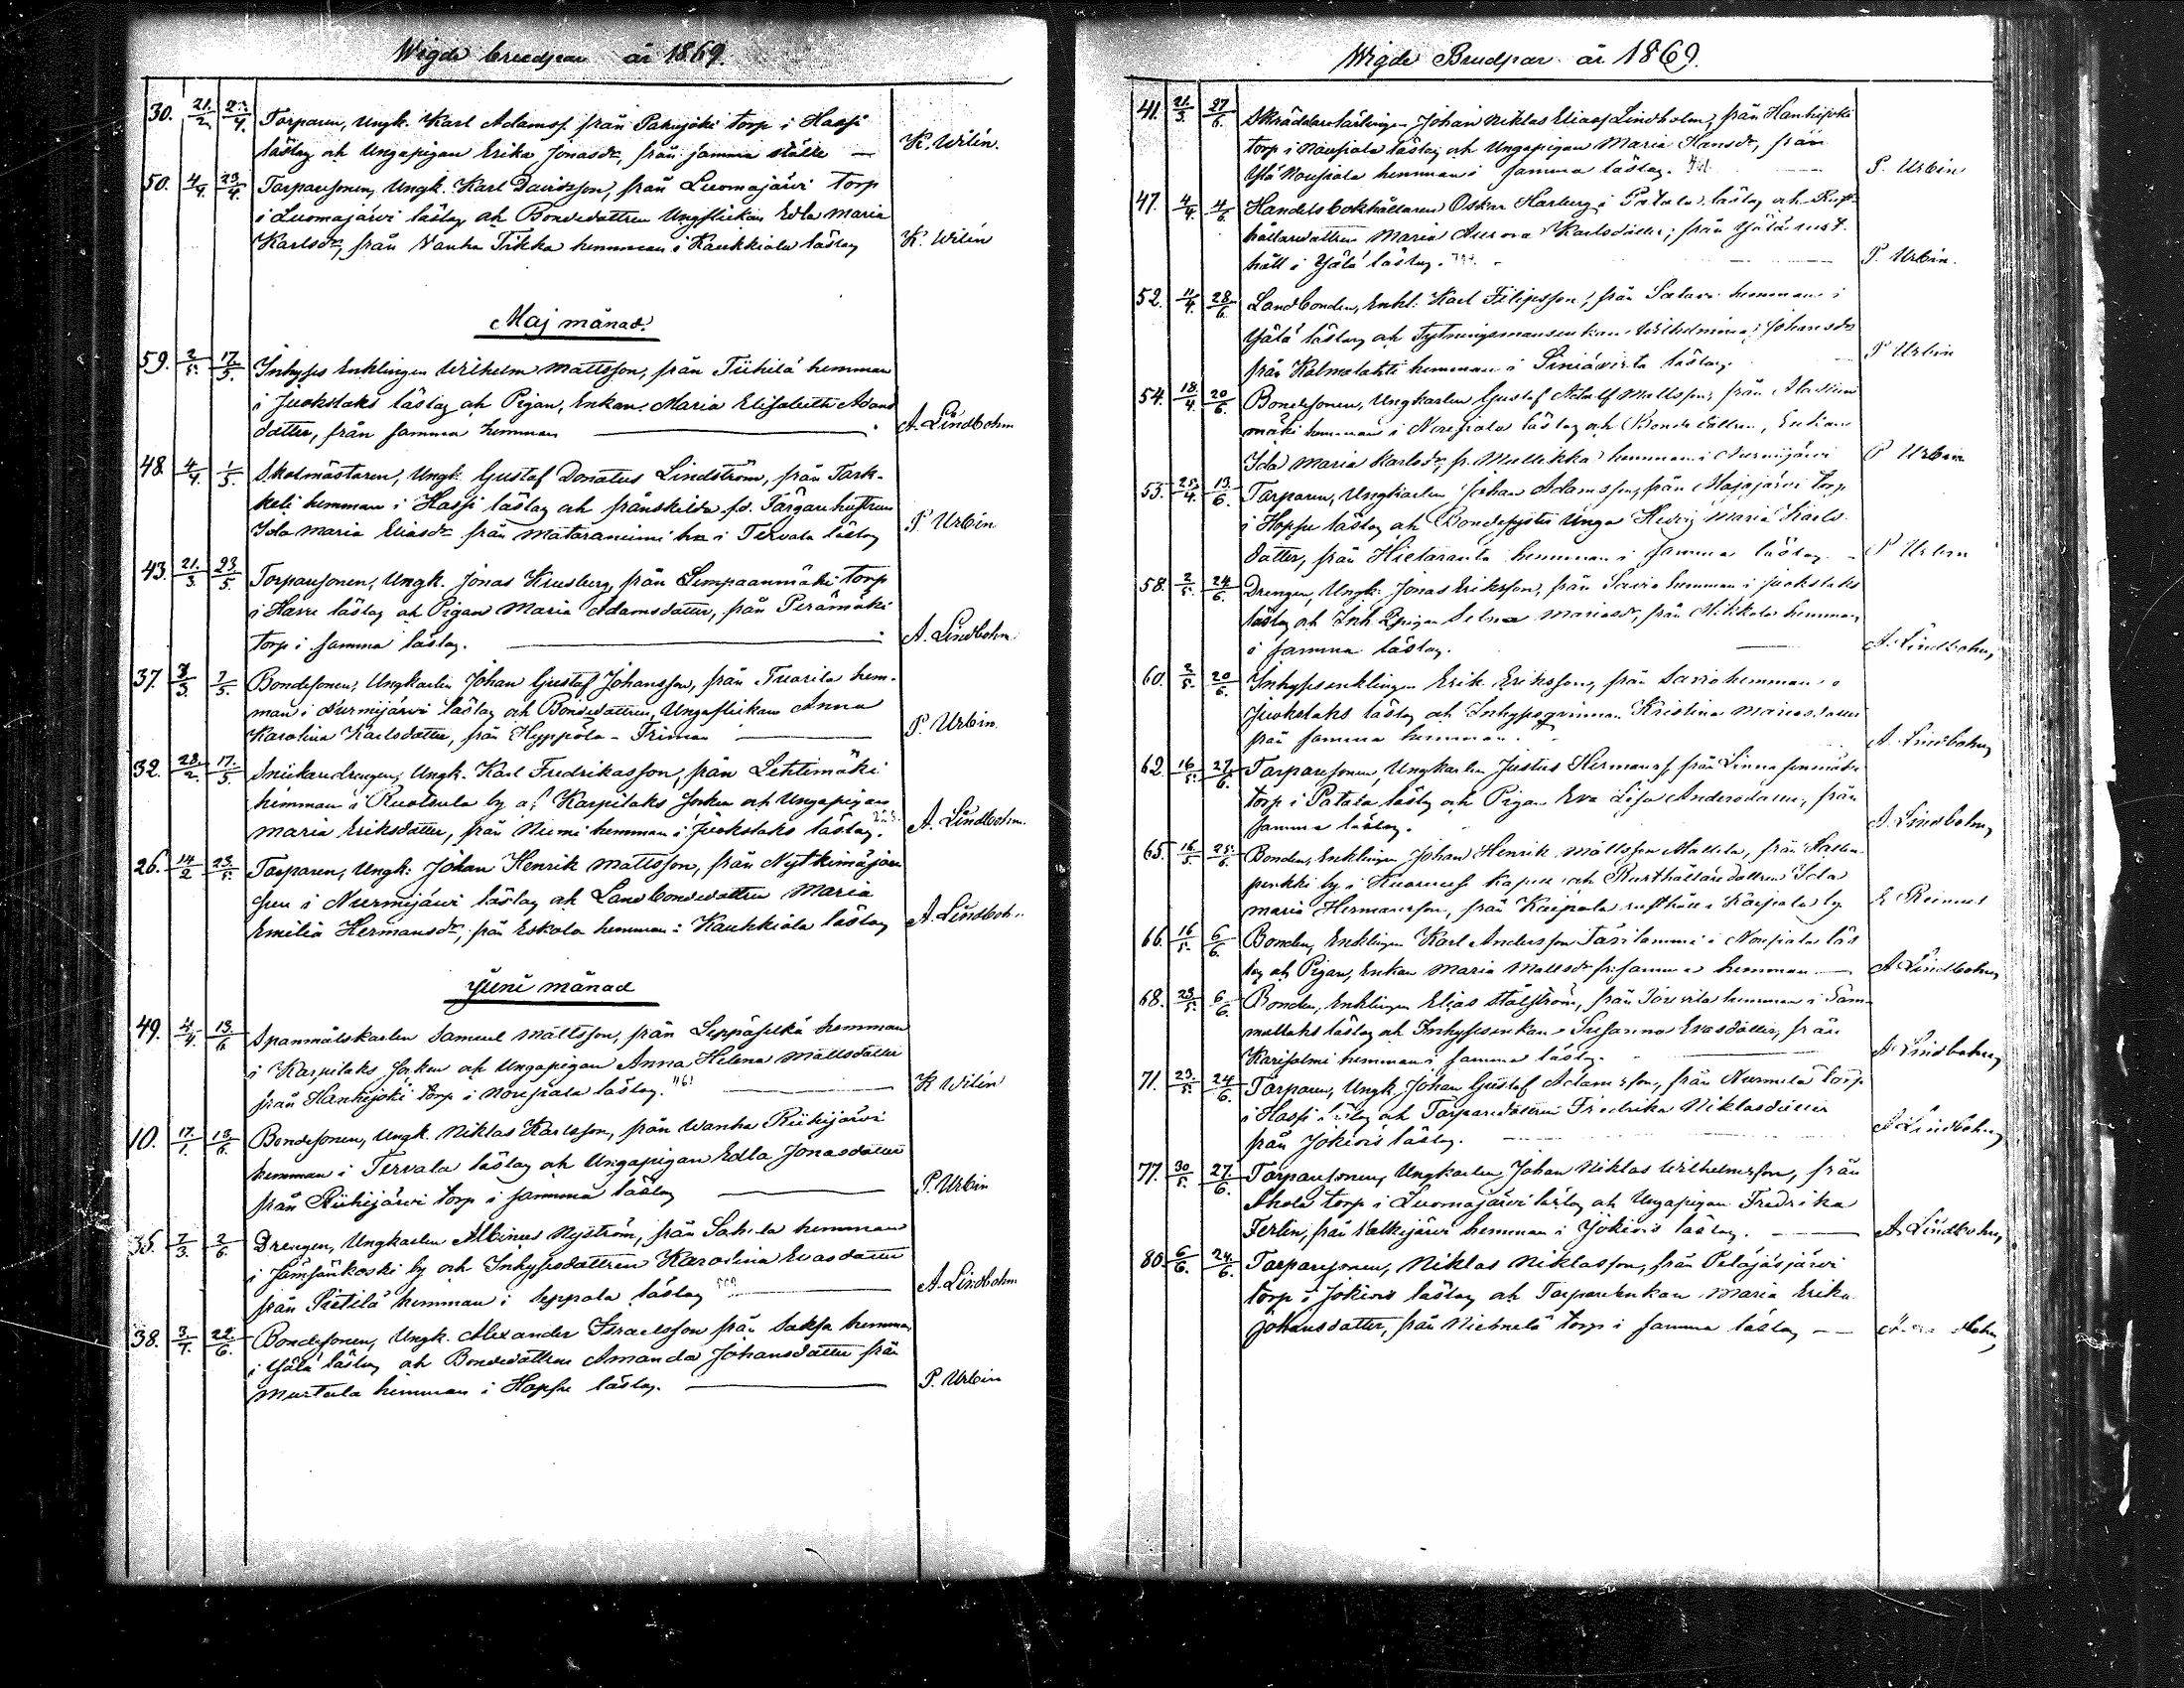 Wigde brudpar år 1869.
30. 21/2 /4. Torparen, Ungk. Karl Adamsf. från Pakujoki torp i Hassi
läslag och Ungapigan Erika Jonasdr, från samma ställe — K. Wilén.
50. 4/4. 23/4. Torparesonen, Ungk. Karl Davidsson, från Luomajärvi torp
i Luomajärvi läslag och Bondedottren Ungflickan Edla Maria
Karlsdr, från Vanha Tikka hemman i Kaukkiala läslag K. Wilén
Maj månad.
59. 2/5. 17/5. Inhyses Enklingen Wilhelm Mattsson, från Tiihilä hemman
i Juokslaks läslag och Pigan, Enkan Maria Elisabeth Adams
dotter, från samma hemman — A. Lindbohm
48. 4/4. 1/5. Skolmästaren, Ungk. Gustaf Donatus Lindström, från Tark-
keli hemman i Hassi läslag och frånskilda fd. Färgarehustrun
Ida Maria Eliasdr från Mataraniemi hn i Tervala läslag P. Urbin
43. 21/3. 23/5. Torparesonen, Ungk. Jonas Krusberg, från Limpaanmäki torp
i Harre läslag och Pigan Maria Adamsdotter, från Perämäki
torp i samma läslag. — A. Lindbohm
37. 7/3. 7/5. Bondesonen, Ungkarlen Johan Gustaf Johansson, från Tuorila hem-
man i Nurmijärvi läslag och Bondedottren, Ungaflickan Anna
Karolina Karlsdotter, från Hyppölä-Friman — P. Urbin.
32. 28/2. 17/5. Snickaredrengen, Ungk. Karl Fredrikasson, från Lehtimäki
hemman i Ruotsula by af Karpilaks Socken och Ungapigan
Maria Eriksdotter, från Niemi hemman i Juokslaks läslag. A. Lindbohm.
26. 14/2 23/5. Torparen, Ungk. Johan Henrik Mattsson, från Nytkimäjärv
i Nurmijärvi läslag och Landbondedottren Maria
Emilia Hermansdr, från Eskola hemman i Kaukkiala läslag A. Lindboh
Juni månad
49. 4/4. 13/6. Spanmålskarlen Samuel Mattsson, från Leppäselkä hemman
i Karpilaks Socken och Ungapigan Anna Helena Mattsdotter
från Hanhijoki torp i Nousiala läslag. — K Wilén
10. 17/1. 13/6. Bondesonen, Ungk. Niklas Karlsson, från Wanha Riihijärvi
hemman i Tervala läslag och Ungapigan Edla Jonasdotter
från Riihijärvi torp i samma läslag — P. Urbin
35. 7/3. 2/6. Drengen, Ungkarlen Albinus Nyström, från Sahila hemman
i Jämsänkoski by och Inhysesdottren Karolina Evasdotter
från Pietilä hemman i Seppola läslag — A. Lindbohm
38. 3/1. 22/6. Bondesonen, Ungk. Alexander Israelsson från Saksa hemman
i Yjälä läslag och Bondedottren Amanda Johansdotter från
Murtula hemman i Hopsu läslag. — P. Urbin
Wigde Brudpar år 1869.
41. 21/3. 27/6. Skräddarelärlingen Johan Niklas Eliass Lindholm, från Hanhijoki
torp i Nousiala läslag och Ungapigan Maria Hansdr, från
Ylä Nousiala hemman i samma läslag. P. Urbin
47. 4/4. 4/6. Handelsbokhållaren Oskar Karberg i Patala läslag och Rust-
hållaredottren Maria Aurora Karlsdotter, från Yjälä rust-
håll i Yjälä läslag. P. Urbin.
52. 11/4. 28/6. Landbonden, Enkl. Karl Filipsson, från hemman i
Yjälä läslag och Wilhelmina Johansdr
från Kalmalahti hemman i Siniävirta läslag. P Urbin
54. 18/4. 20/6. Bondesonen, Ungkarlen Gustaf Adolf Mattsson, från
mäki hemman i Nousiala läslag och Bondedottren, Enkan
Ida Maria Karlsdr, fr. Mullikka hemman i Nurmijärvi P Urbin
53. 25/4. 13/6. Torparen, Ungkarlen Johan Adamsson, från Majajärvi torp
i Hopsu läslag och Bondesyster Unga Hedvig Maria Karls-
dotter, från Hietaranta hemman i samma läslag. — P Urbin
58. 2/5. 24/6. Drengen, Ungk. Jonas Eriksson, från Savio hemman i Juokslaks
läslag och Inh. Pigan Selma Mariasdr, från Mikkola hemman
i samma läslag. — A. Lindbohm
60. 2/5. 20/6. Inhysesenklingen Erik Eriksson, från Savio hemman i
Juokslaks läslag och Inhysesqvinnan Kristina Mariasdotter
från samma hemman. A. Lindbohm
62. 16/5. 27/6. Torparesonen, Ungkarlen Justus Hermansf. från Linnasenmäki
torp i Patala läslag och Pigan Eva Lisa Andersdotter, från
samma läslag. A. Lindbohm
65. 16/5. 25/6. Bonden, Enklingen Johan Henrik Mattsson Mattila, från Hallin-
penkki by i Kuorevesi Kapell och Rusthållaredottren Ida
Maria Hermansson, från Kaipola rusthåll i Kaipola by E Reinius
66. 16/5. 6/6. Bonden, Enklingen Karl Andersson Tarilammi i Nousiala läs
lag och Pigan, Enkan Maria Mattsdr fr. samma hemman — A. Lindbohm
68. 23/5. 6/6. Bonden, Enklingen Elias Stålström, från hemman i Säm-
mallaks läslag och Inhysesenkan Susanna Evasdotter, från
Karisalmi hemman i samma läslag. — A. Lindbohm
71. 23/5. 24/6. Torparen, Ungk. Johan Gustaf Adamsson, från Nurmela torp
i Hassi läslag och Torparedottren Fredrika Niklasdotter
från Jokivis läslag. A Lindbohm
77. 30/5. 27/6. Torparesonen, Ungkarlen Johan Niklas Wilhelmsson, från
Ahola torp i Luomajärvi läslag och Ungapigan Fredrika
Ferlin, från Valkijärvi hemman i Jokivis läslag. — A. Lindbohm
80. 6/6. 24/6. Torparesonen, Niklas Niklasson, från Petäjäsjärvi
torp i Jokivis läslag och Torpareenkan Maria Erika
Johansdotter, från Niehmelä torp i samma läslag — —